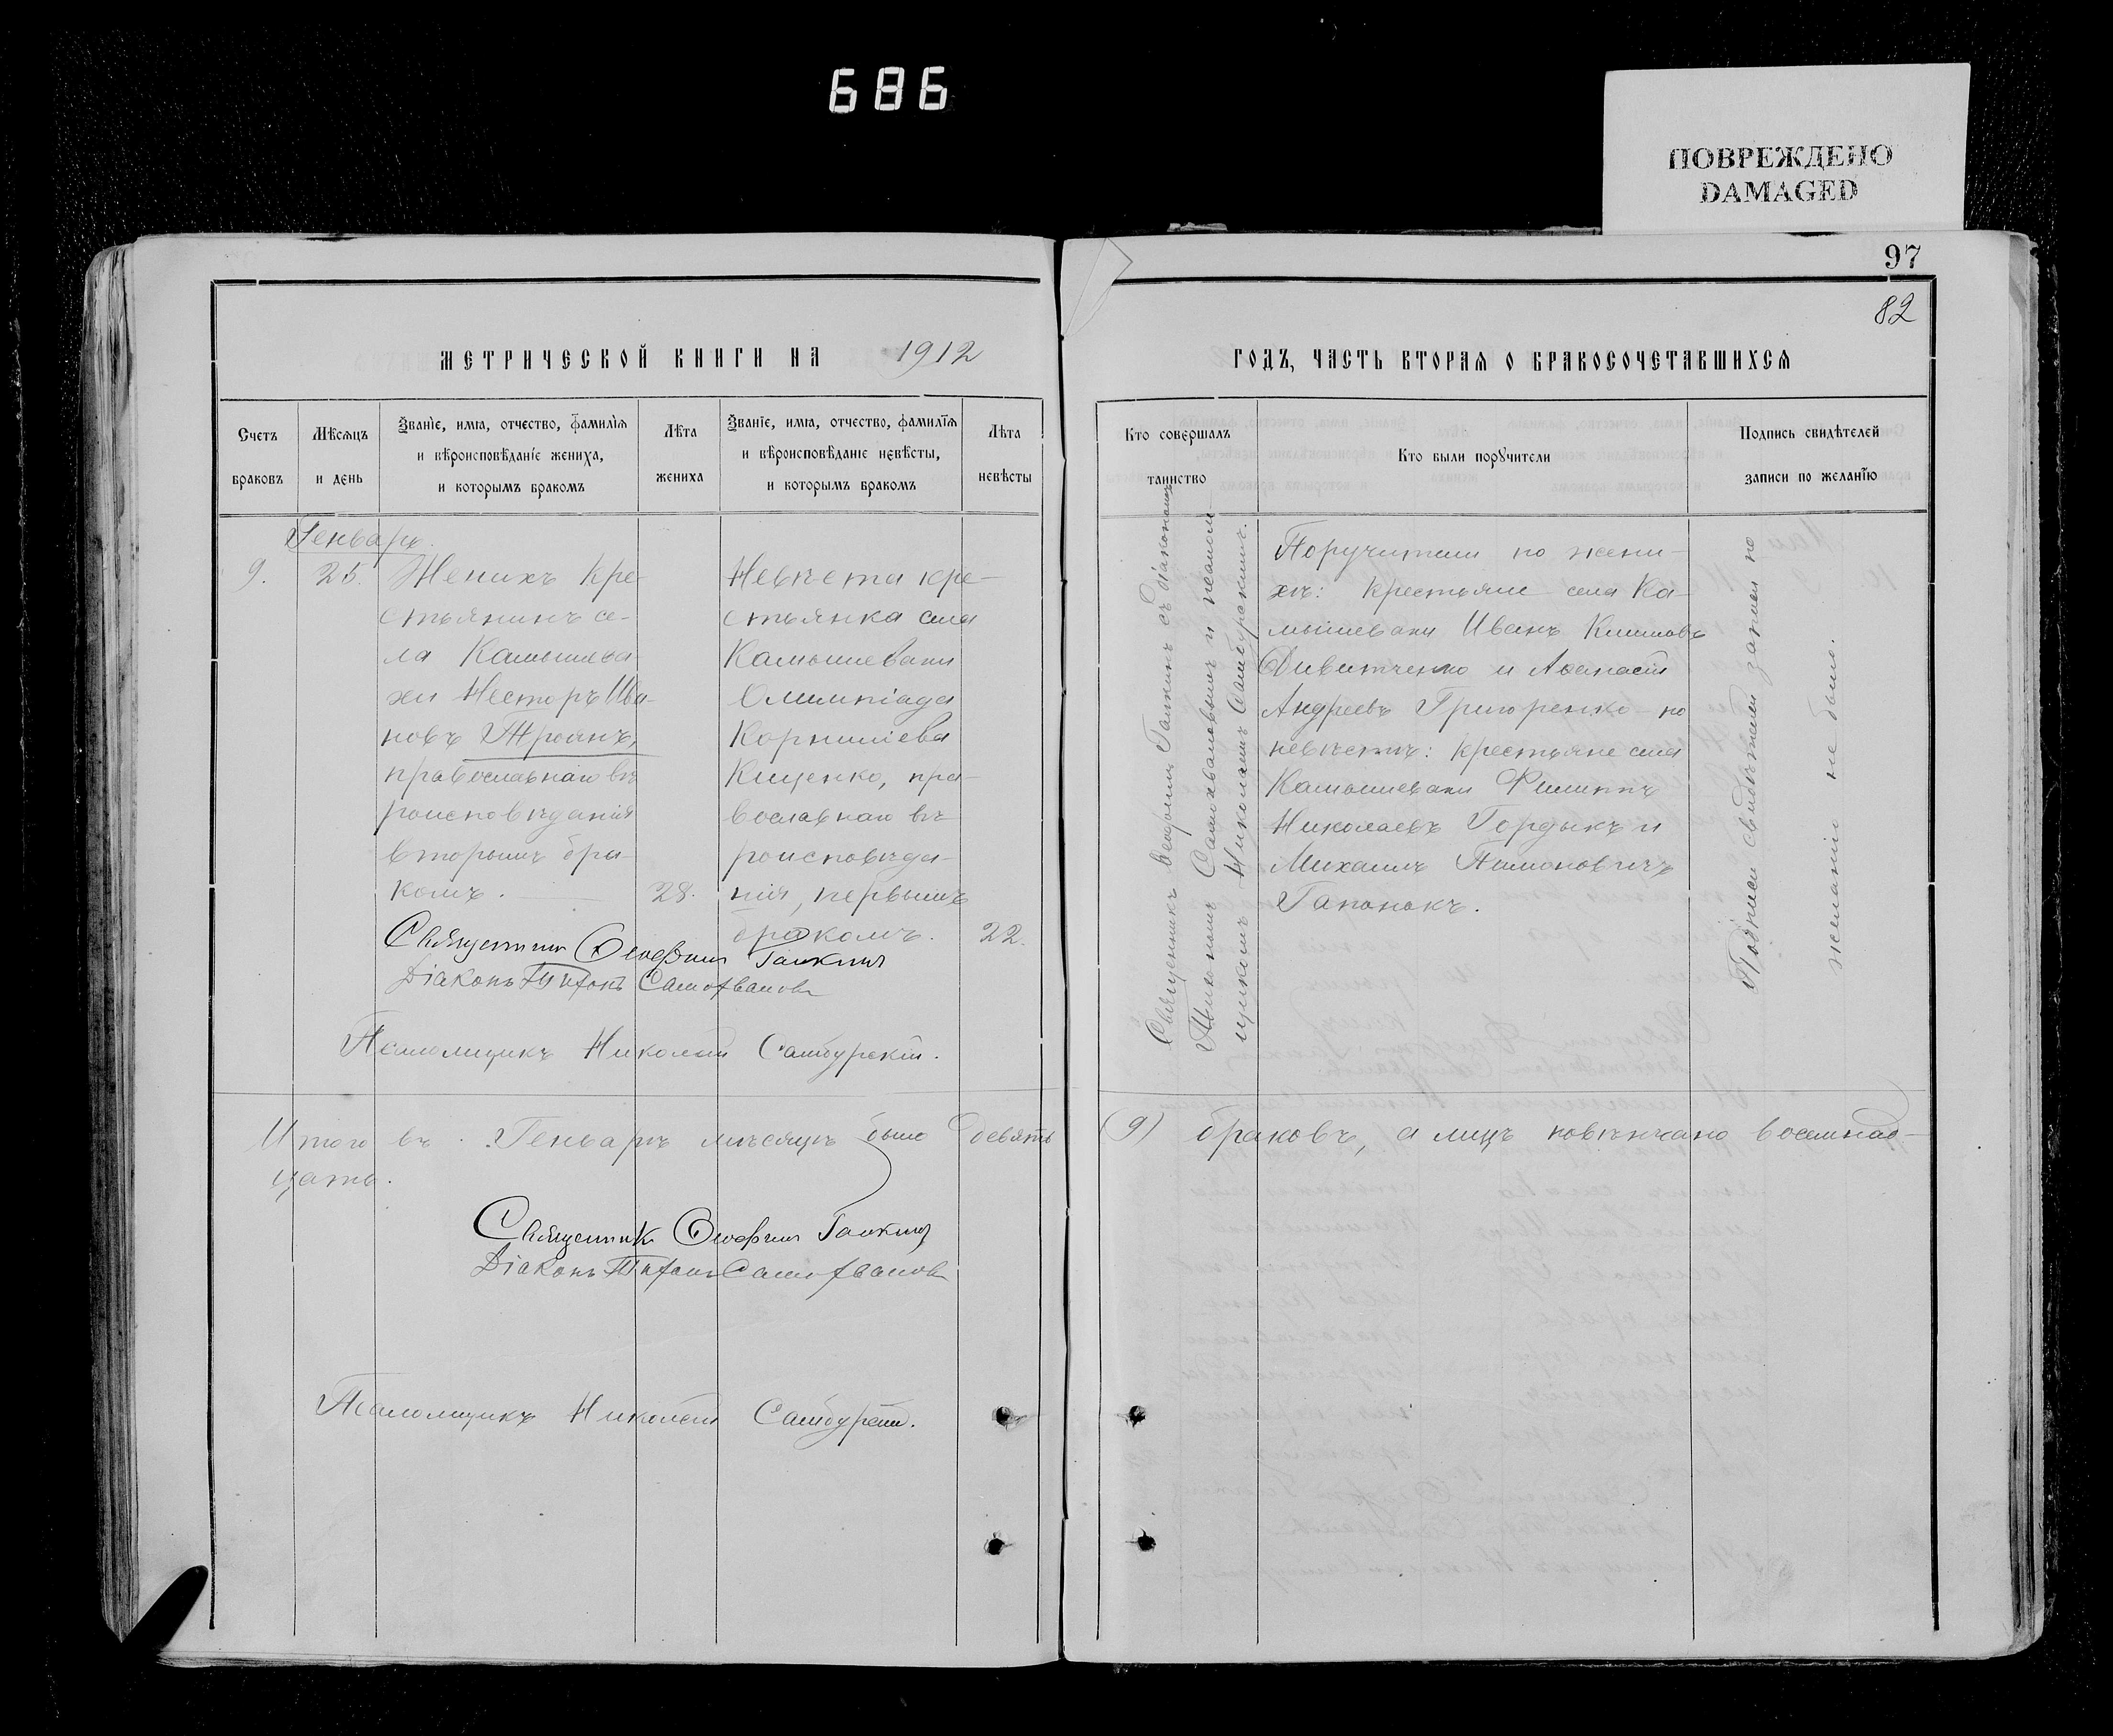 686
ПОВРЕЖДЕНО
DAMAGED
97
82
МЕТРИЧЕСКОЙ КНИГИ НА 1912
ГОДЪ, ЧАСТЬ ВТОРАЯ О БРАКОСОЧЕТАВШИХСЯ
Счетъ браковъ
Мѣсяцъ и день
Званіе, имя, отчество, фамилія и вѣроисповѣданіе жениха, и которымъ бракомъ
Лѣта жениха
Званіе, имя, отчество, фамилія и вѣроисповѣданіе невѣсты, и которымъ бракомъ
Лѣта невѣсты
Кто совершалъ таинство
Кто были поручители
Подпись свидѣтелей записи по желанію
Генварь.
9.
25.
Женихъ кре-
стьянинъ се-
ла Камышева
хи Несторъ Ива-
новъ Троянъ,
православнаго вѣ
роисповѣданія
вторымъ бра-
комъ.
28.
Невѣста кре-
стьянка села
Камышевахи
Олимпіада
Корниліева
Кищенко, пра-
вославнаго вѣ
роисповѣда-
нія, первымъ
бракомъ.
22.
Священникъ Ѳеофилъ Галкинъ
Діаконъ Тихонъ Самохваловъ
Псаломщикъ Николай Самбурскій.
Священникъ Ѳеофилъ Галкинъ съ діакономъ
Тихономъ Самохваловымъ и псалом
щикомъ Николаемъ Самбурскимъ.
Поручители по жени-
хѣ: крестьяне села Ка-
мышевахи Иванъ Климовъ
Дивитченко и Аѳанасій
Андреевъ Григоренко по
невѣстѣ: крестьяне села
Камышевахи Филиппъ
Николаевъ Гордыкъ и
Михаилъ
Гапонокъ.
Подписи свидѣтелей записи по
желанію не было.
Итого въ Генварѣ мѣсяцѣ было девять (9) браковъ, а лицъ повѣнчано восемнад-
цать.
Священникъ Ѳеофилъ Галкинъ
Діаконъ Тихонъ Самохваловъ
Псаломщикъ Николай Самбурскій.